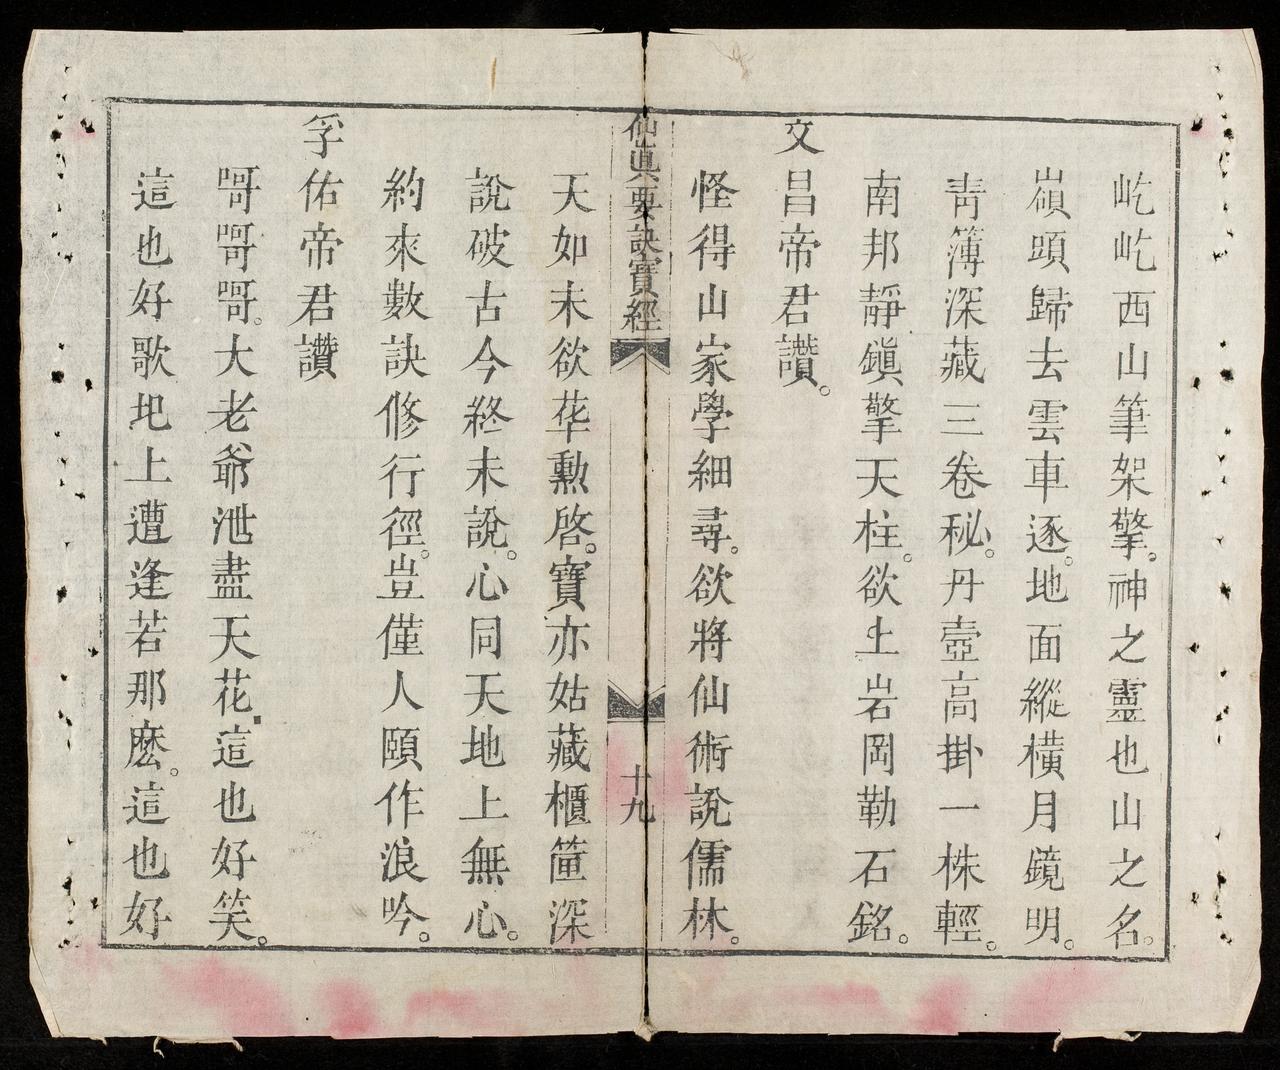 屹屹西山筆架擎。神之靈也山之名。
嵿頭歸去雲車逐。地面縱橫月鏡明。
青簿深藏三卷秘。丹壺高掛一株輕。
南邦靜鎮擎天柱。欲上岩岡勒石銘。
文昌帝君讚。
怪得山家學細尋。欲將仙術說儒林。
仙眞要訣寶經
十九
天如未欲華勳啓。寶亦姑藏櫃篋深
說破古今終未說。心同天地上無心。
約來數訣修行徑。豈僅人頤作浪吟。
孚佑帝君讚
哥哥哥。大老爺泄盡天花這也好笑。
這也好歌圯上遭逢若那麽。這也好